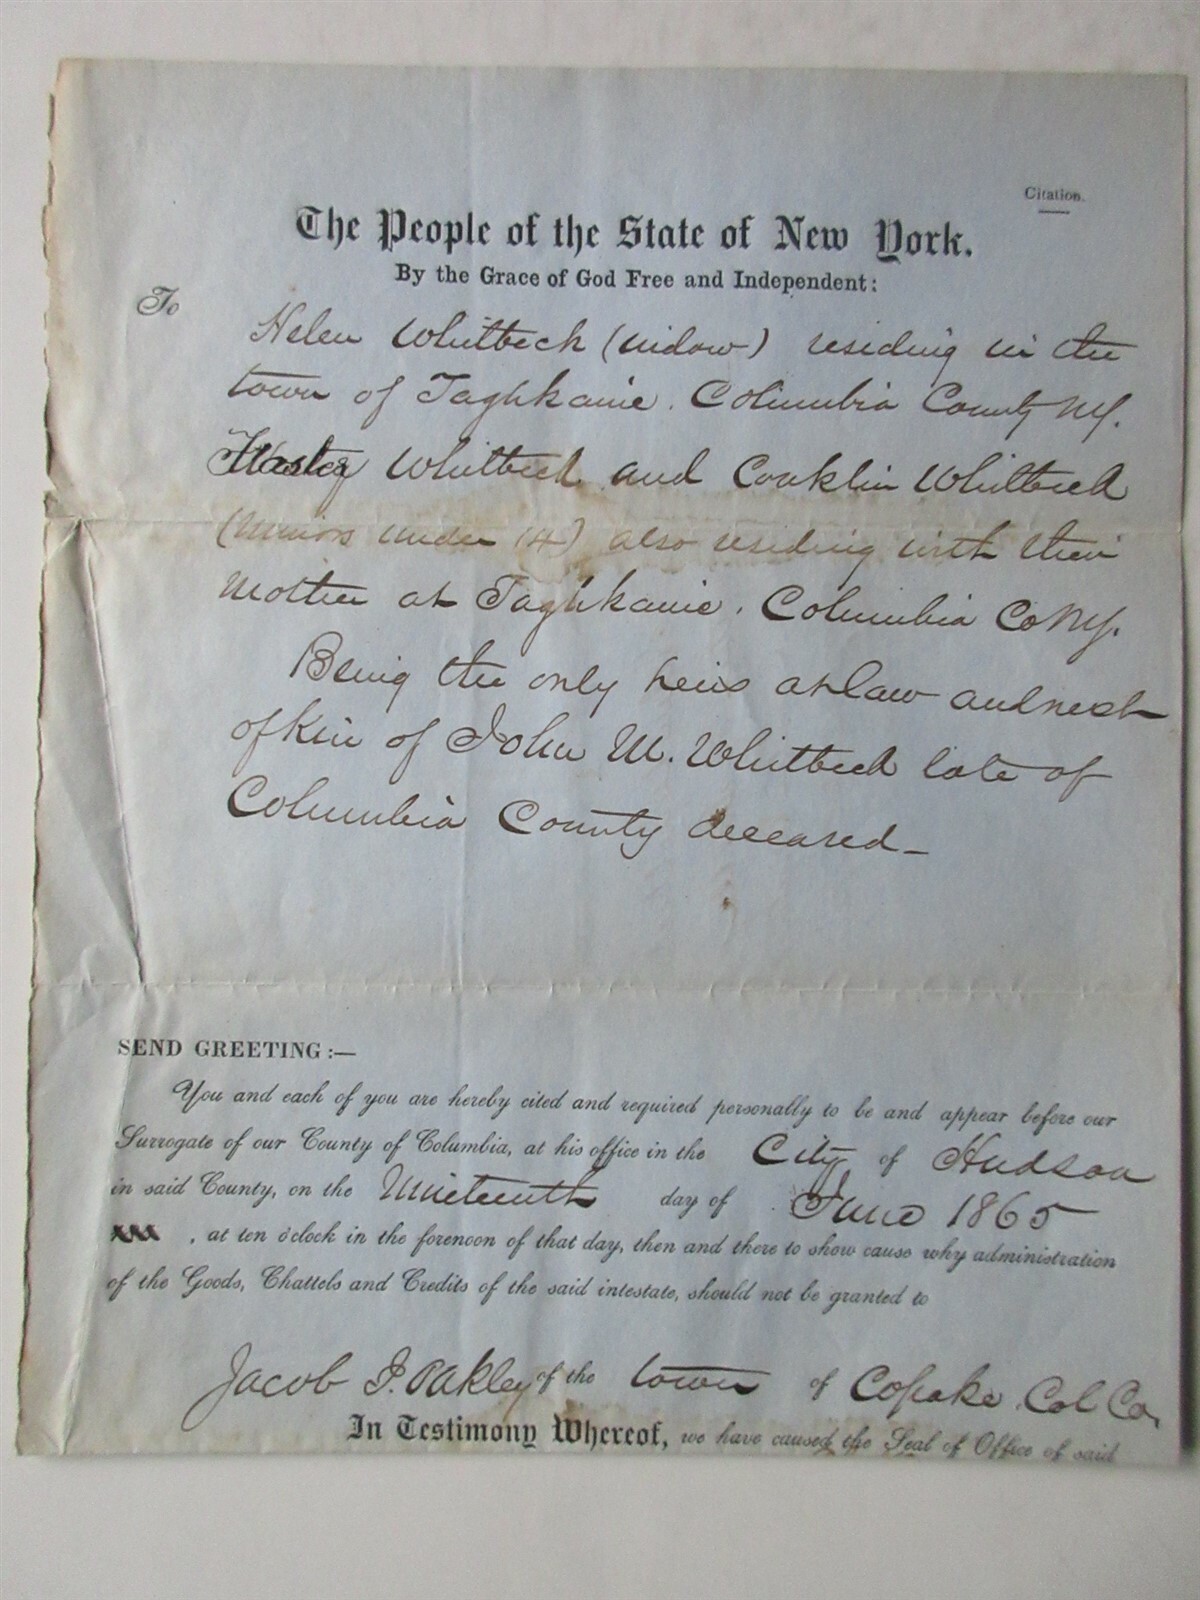 Citation.
The People of the State of New York.
By the Grace of God Free and Independent:
To
Helen Whitbeck (widow) residing in the
town of Taghkanic. Columbia County NY.
Whitbeck and Conklin Whitbeck
(Minors under 14) also residing with their
Mother at Taghkanic. Columbia Co NY.
Being the only heirs at law and next
of kin of John M. Whitbeck late of
Columbia County deceased -
SEND GREETING:—
You and each of you are hereby cited and required personally to be and appear before our
Surrogate of our County of Columbia, at his office in the City of Hudson
in said County, on the Nineteenth day of June 1865
, at ten o'clock in the forenoon of that day, then and there to show cause why administration
of the Goods, Chattels and Credits of the said intestate, should not be granted to
Jacob I. Oakley of the town of Copake Col Co,
In Testimony Whereof, we have caused the Seal of Office of said